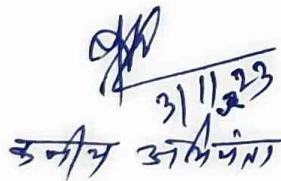 3/11/23
कनीय अभियंता